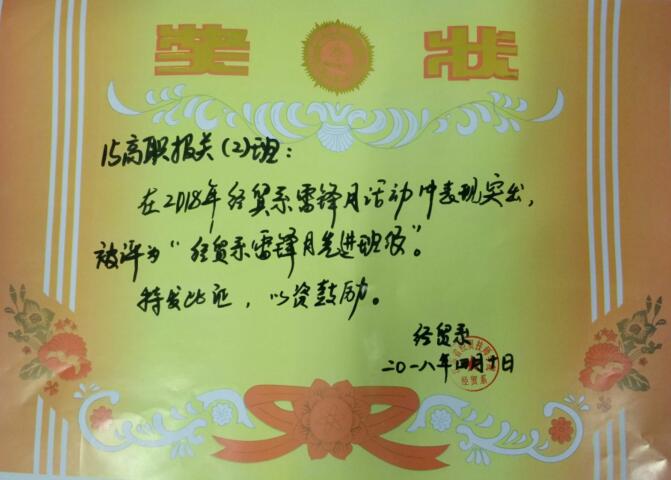 奖状
15高职报关(2)班:
在2018年经贸系雷锋月活动中表现突出,
被评为“经贸系雷锋月先进班级”。
特发此证,以资鼓励。
经贸系
二〇一八年四月十日
经贸系